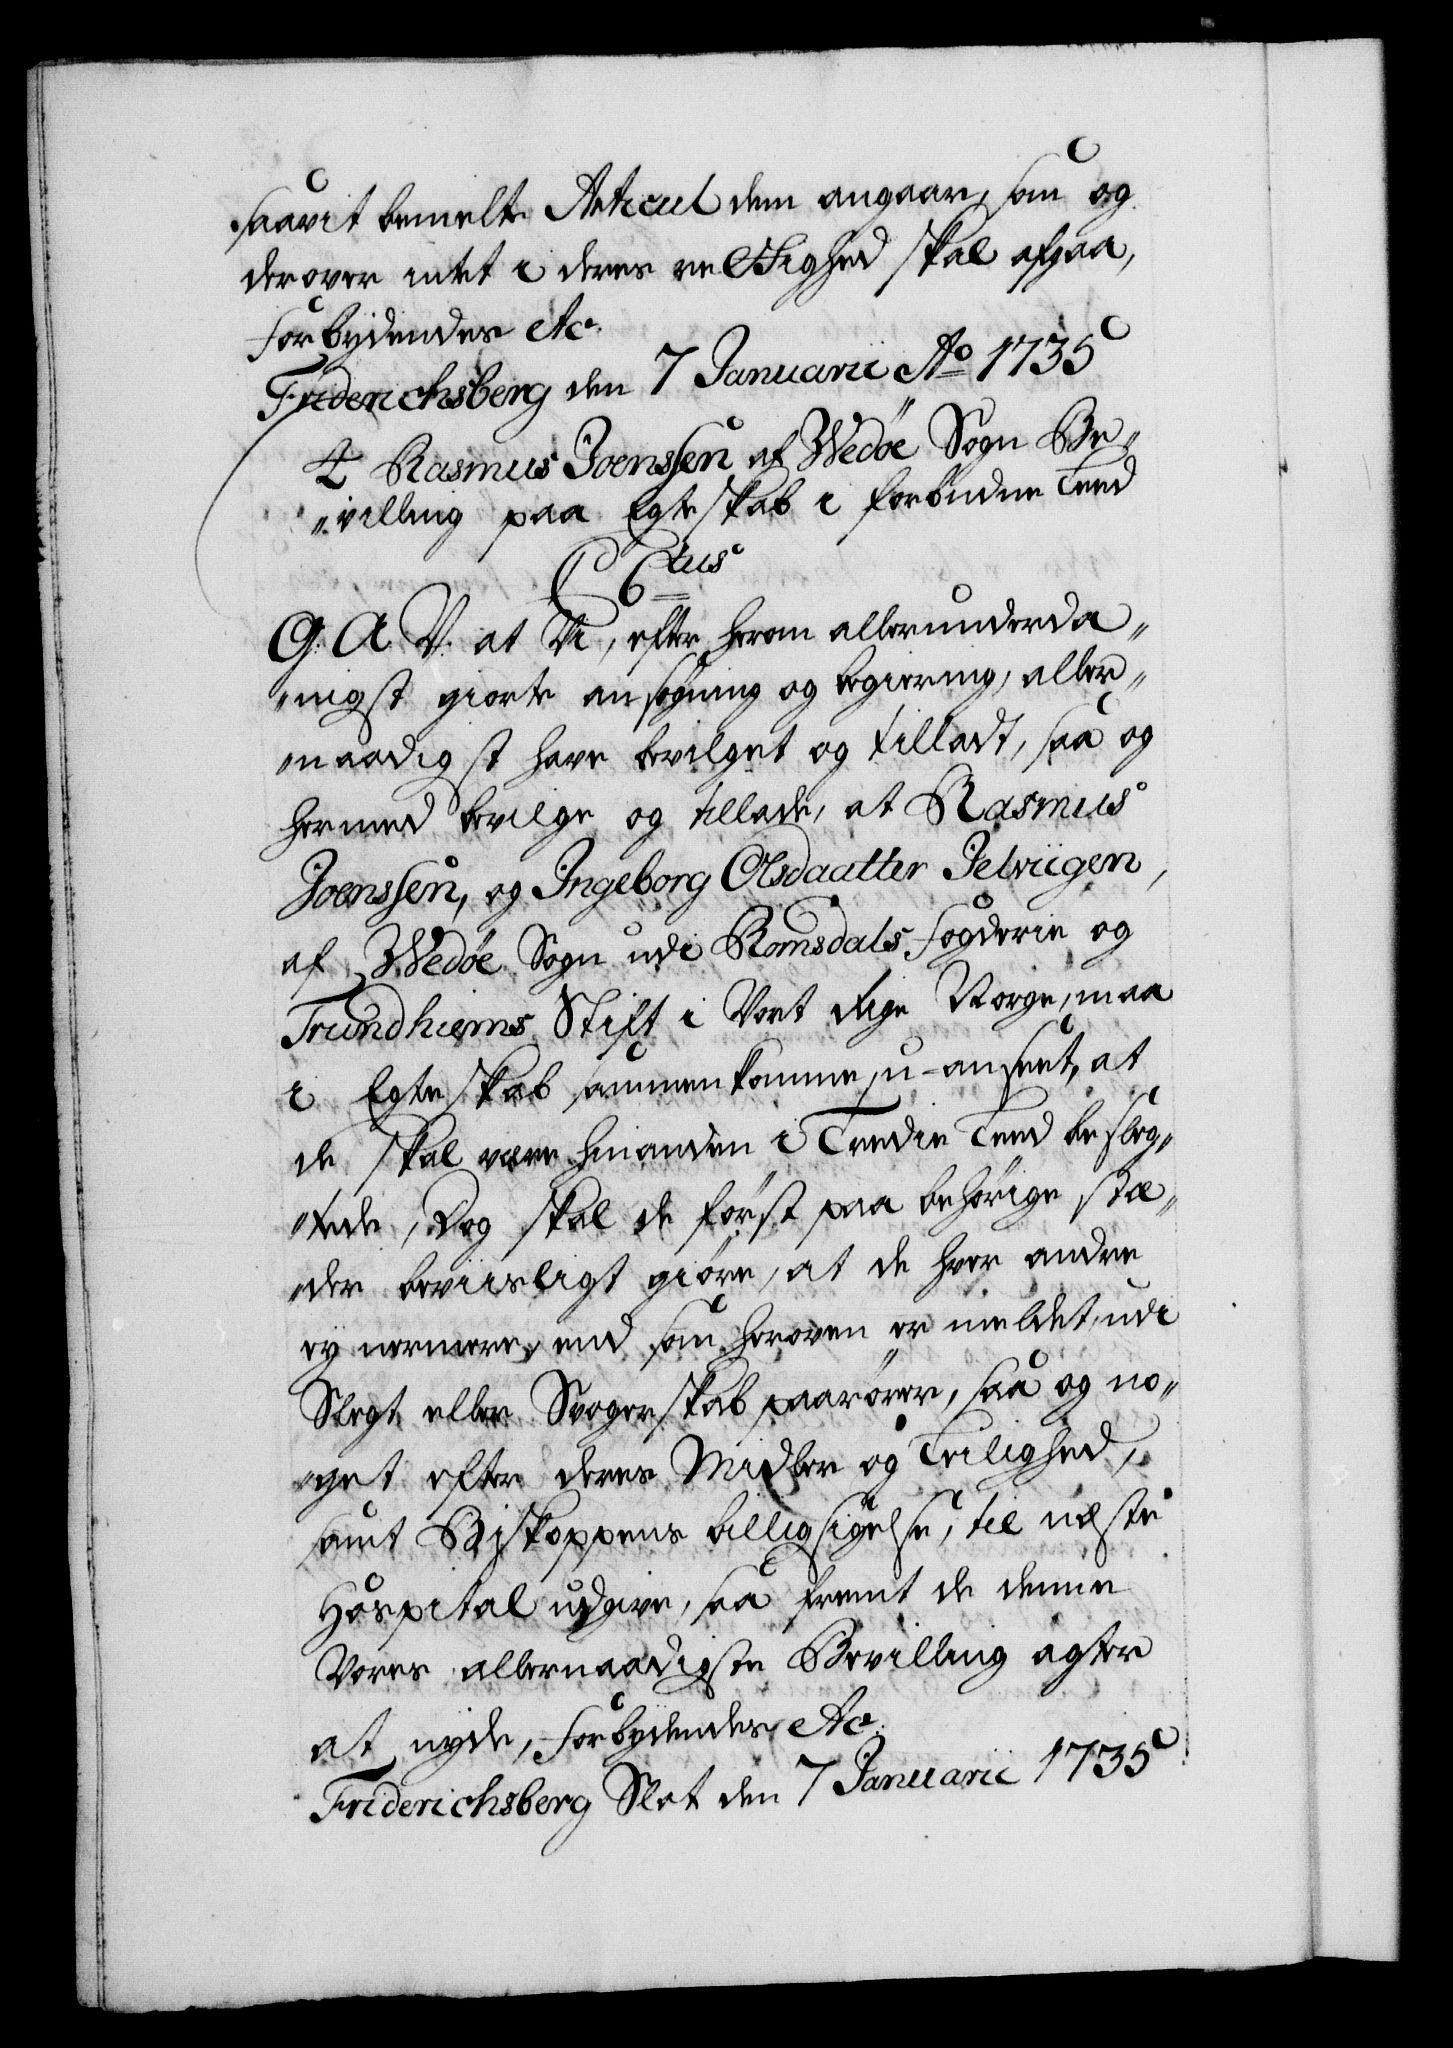 saavit bemelte Articul dem angaar, som og
derover intet i deres rettighed skal afgaa,
Forbydendes etc.
Friderichsberg den 7 Januarii Ao 1735
4 Rasmus Joenssen af Wedøe Sogn Be„
„villing paa Egteskab i forbudne Leed
C 6tus
G. A. V. at Vi, efter herom allerunderda„
„nigst giorte ansøgning og begiering, aller„
„naadigst have bevilget og tilladt, saa og
hermed bevilge og tillade, at Rasmus
Joenssen, og Ingeborg Olsdaatter Jelviigen,
af Wedøe Sogn udi Romsdals Fogderie og
Trundhiems Stift i Vort Rige Norge, maa
i Egteskab sammenkomme, u-anseet, at
de skal være hinanden i Tredie Leed beslæg„
„tede, Dog skal de først paa behørige stæ„
„der beviisligt giøre, at de hver andre
ey nermere, end som heroven er meldet, udi
Slegt eller Svogerskab paarører, saa og no„
„get efter deres Midler og Leilighed,
samt Biskoppens billigsigelse, til næste
Hospital udgive, saa fremt de denne
Vores allernaadigste Bevilling agter
at nyde, Forbydendes etc.
Friderichsberg Slot den 7 Januarii 1735